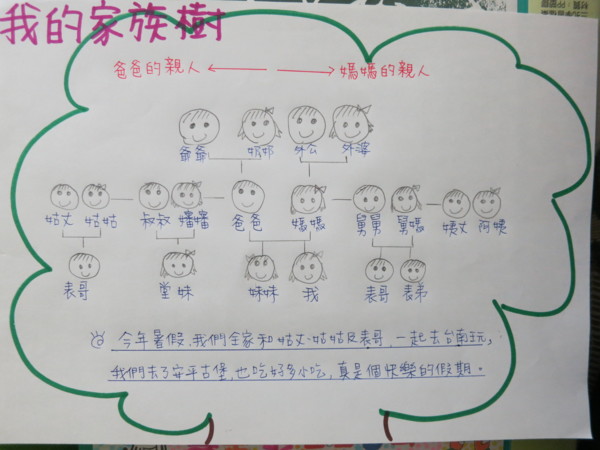 我的家族樹
爸爸的親人 媽媽的親人
爺爺 奶奶 外公 外婆
姑丈 姑姑 叔叔 嬸嬸 爸爸 媽媽 舅舅 舅媽 姨丈 阿姨
表哥 堂妹 妹妹 我 表哥 表弟
今年暑假,我們全家和姑丈、姑姑及表哥,一起去台南玩,
我們去了安平古堡,也吃好多小吃,真是個快樂的假期。